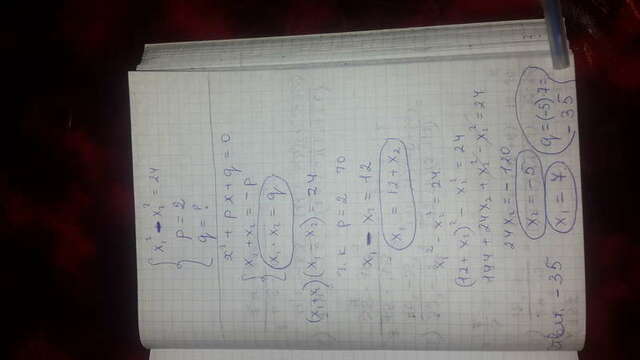 x₁² - x₂² = 24
p = 2
q = ?
x² + px + q = 0
x₁ + x₂ = -p
x₁ · x₂ = q
(x₁+x₂)(x₁-x₂) = 24
т.к p = 2 то
x₁ - x₂ = 12
x₁ = 12 + x₂
x₁² - x₂² = 24
(12 + x₂)² - x₂² = 24
144 + 24x₂ + x₂² - x₂² = 24
24x₂ = -120
x₂ = -5
x₁ = 7
q = (-5)·7 =
-35
Ответ. -35